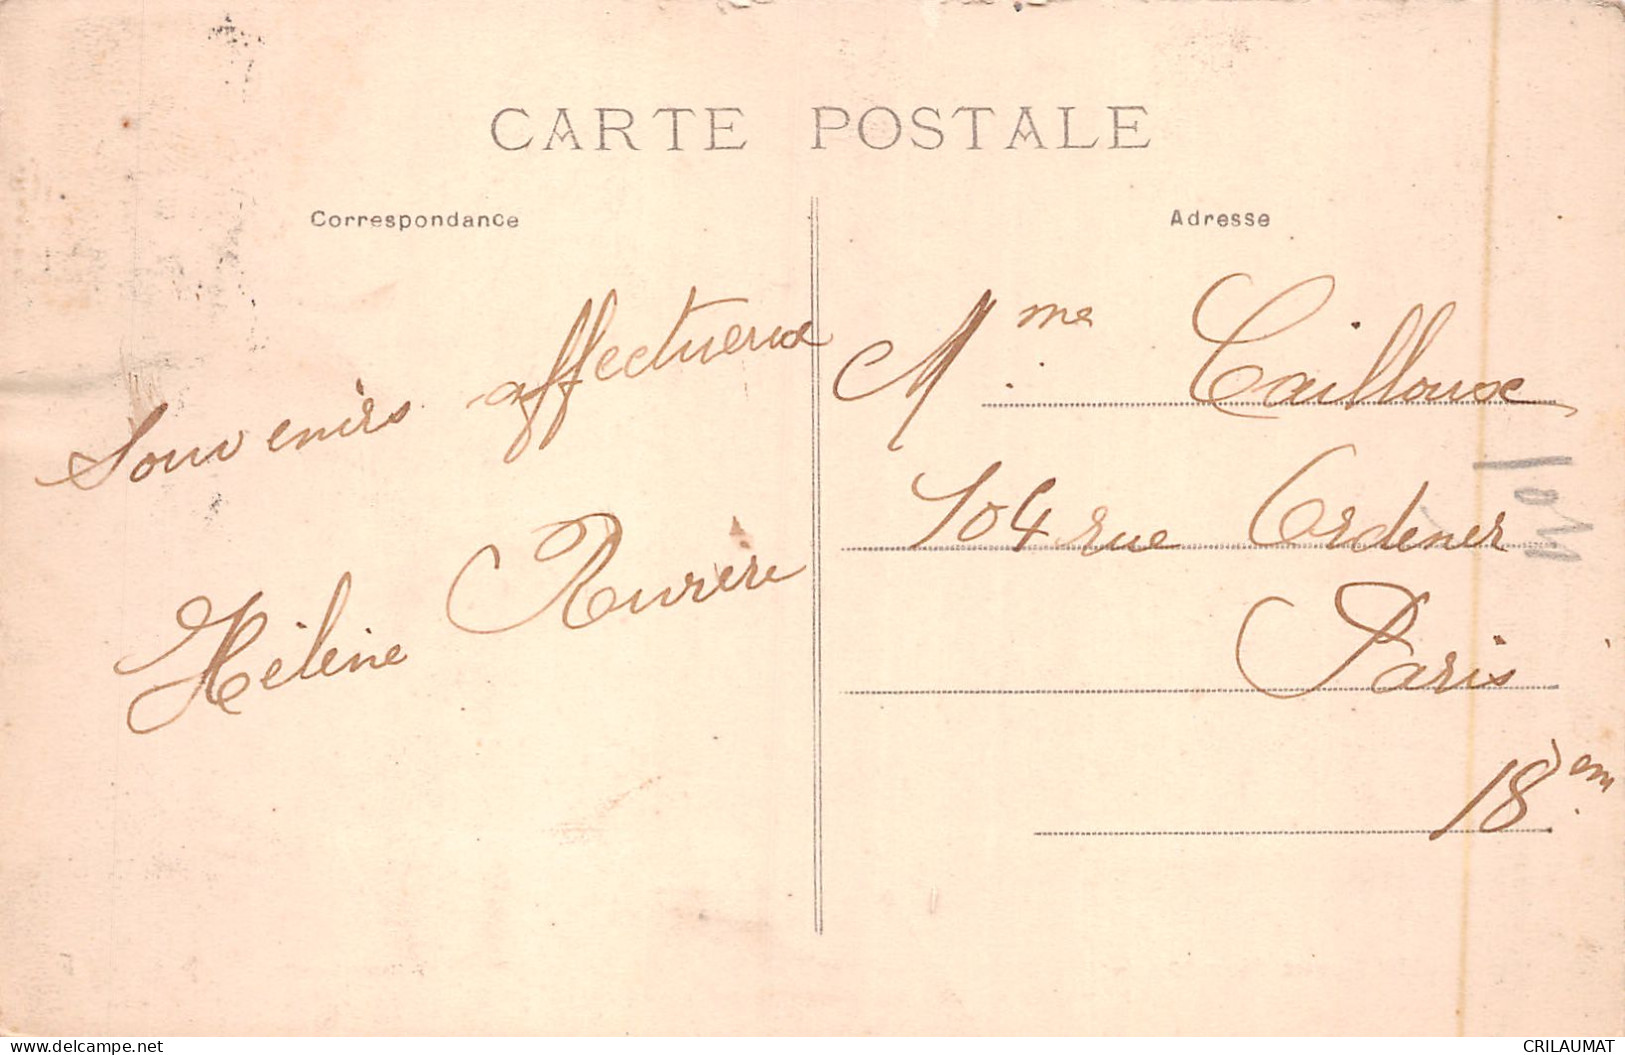 CARTE POSTALE
Correspondance
Souvenirs affectueux
Hélène
Adresse
Mme Cailloux
104 rue Ordener
Paris
18em
delcampe.net
CRILAUMAT